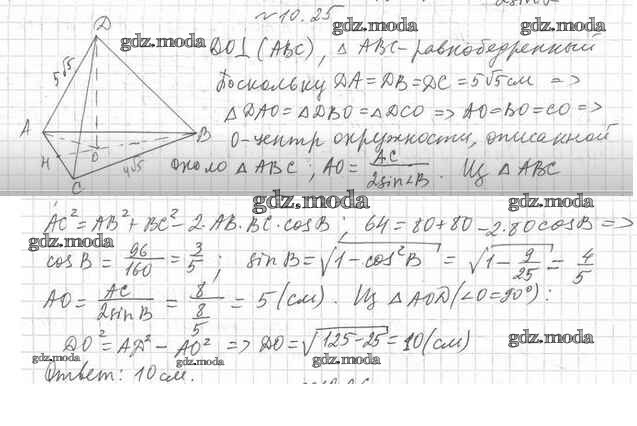 №10.25
gdz.moda gdz.moda gdz.moda
D
DO⊥(ABC), △ABC-равнобедренный
5√5
Поскольку DA=DB=DC=5√5см =>
△DAO=△DBO=△DCO => AO=BO=CO =>
A B
O-центр окружности, описанной
H O 4√5
C
около △ABC; AO= AC/2sin∠B. Из △ABC
gdz.moda gdz.moda
AC²=AB²+BC²-2·AB·BC·cosB; 64=80+80-2·80cosB =>
gdz.moda gdz.moda
cosB = 96/160 = 3/5; sinB=√1-cos²B = √1-9/25 = 4/5
AO= AC/2sinB = 8/8/5 = 5(см). Из △AOD(∠O=90°):
DO²=AD²-AO² => DO=√125-25=10(см)
gdz.moda gdz.moda gdz.moda gdz.moda
Ответ: 10см.